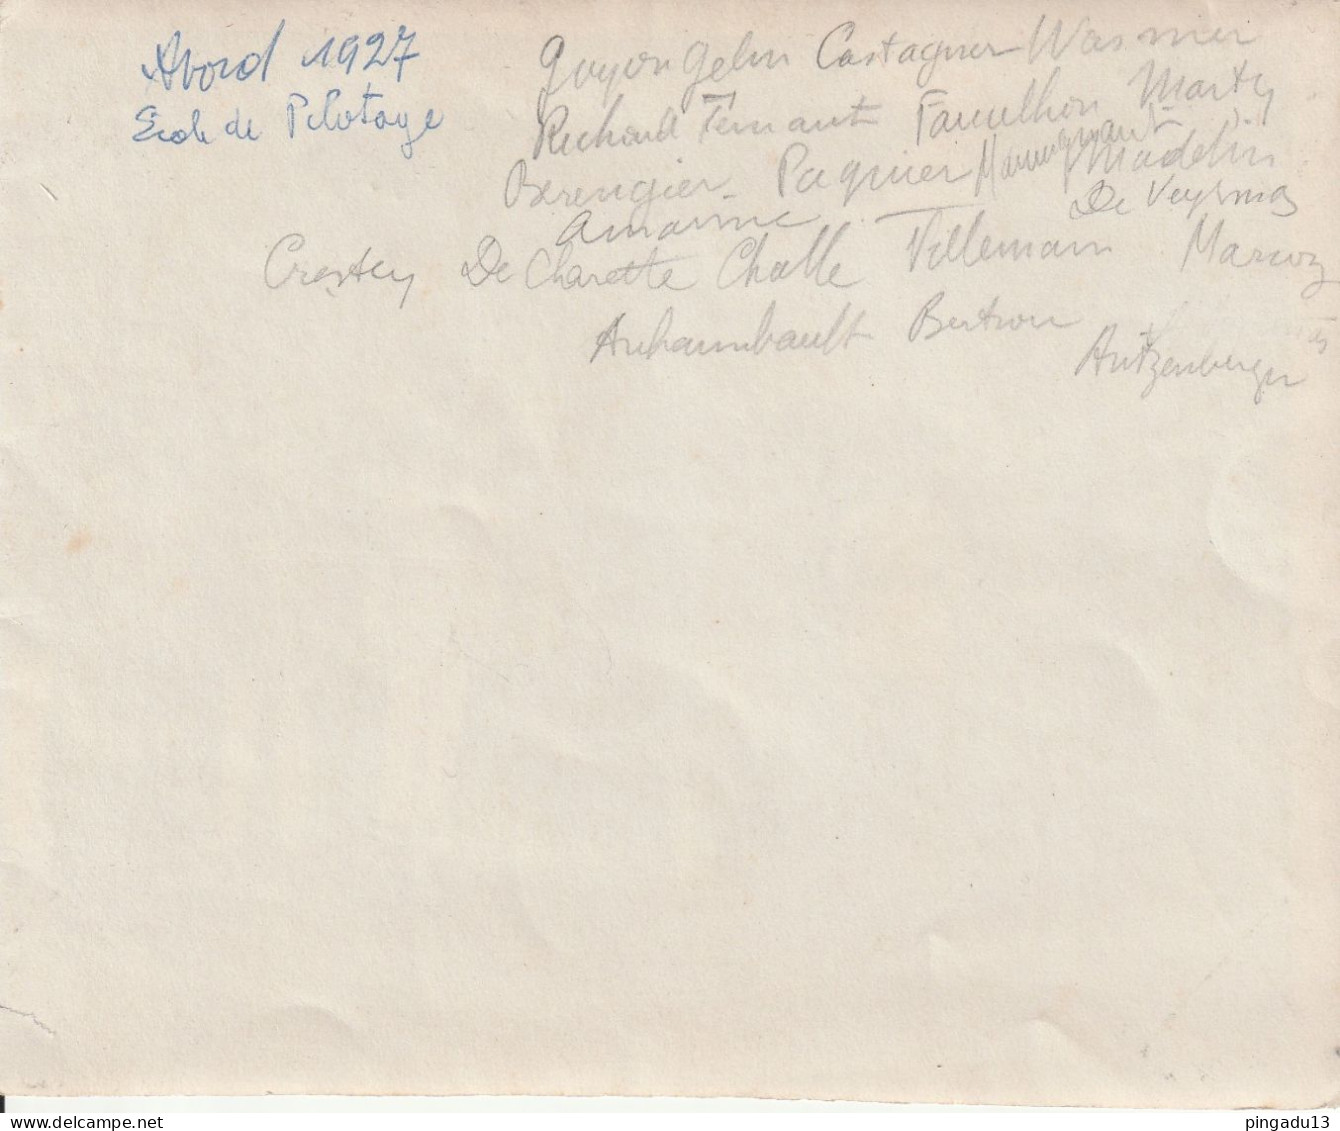 Avord 1927
Ecole de Pilotage
Guyon Gelin Castagner Wasmer
Richard Ternant Faucilhon Marty
Berengier Paquier Madelin
Amarine De Veyrmas
Crestey De Charette Challe Villemain Marcoz
Archambault Bertron
Antzenberger
pingadu13